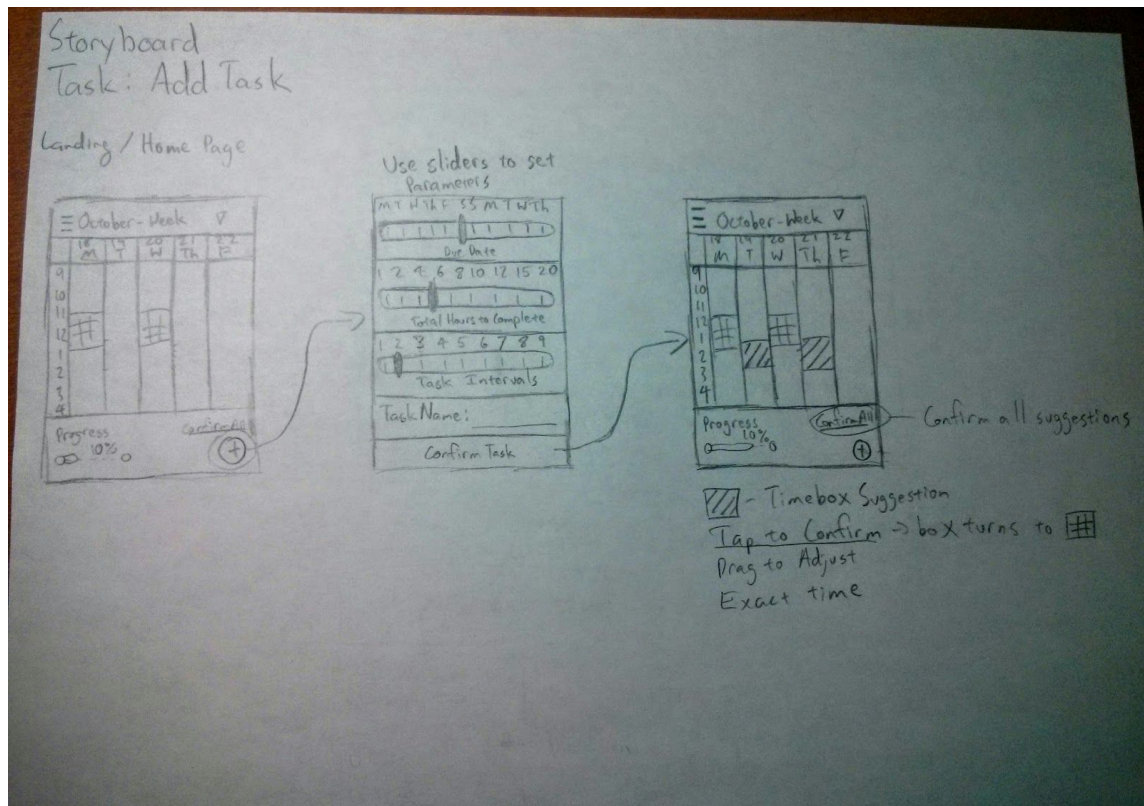 Storyboard
Task: Add Task
Landing / Home Page
October-Week
18 19 20 21 22
M T W Th F
9
10
11
12
1
2
3
4
Progress
10%
Confirm All
+
Use sliders to set
Parameters
M T W Th F S S M T W Th
Due Date
1 2 4 6 8 10 12 15 20
Total Hours to Complete
1 2 3 4 5 6 7 8 9
Task Intervals
Task Name:
Confirm Task
October-Week
18 19 20 21 22
M T W Th F
9
10
11
12
1
2
3
4
Progress
10%
Confirm All
+
Confirm all suggestions
- Timebox Suggestion
Tap to Confirm → box turns to
Drag to Adjust
Exact time